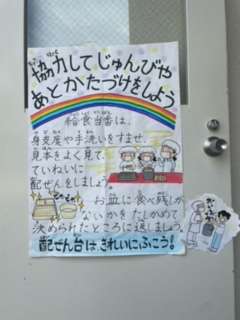 協力してじゅんびや
あとかたづけをしよう
給食当番は、
身支度や手洗いをすませ、
見本をよく見て、
ていねいに
配ぜんをしましょう。
お皿に食べ残しが
ないかをたしかめて
決められたところに返しましょう。
配ぜん台は、きれいにふこう!